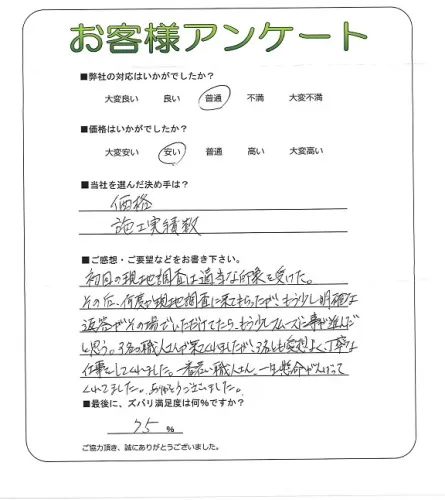 お客様アンケート
■弊社の対応はいかがでしたか？
大変良い 良い 普通 不満 大変不満
■価格はいかがでしたか？
大変安い 安い 普通 高い 大変高い
■当社を選んだ決め手は？
価格
施工実績数
■ご感想・ご要望などをお書き下さい。
初回の現地調査は適当な印象を受けた。
その后、何度か現地調査に来てもらったが、もう少し明確な
返答がその場でいただけてたら、もう少しスムーズに事が進んだ
と思う。3名の職人さんが来てくれましたが、3名とも感想よく丁寧な
仕事をしてくれました。一番若い職人さん、一生懸命がんばって
くれてました。ありがとうございました。
■最後に、ズバリ満足度は何%ですか？
75 %
ご協力頂き、誠にありがとうございました。